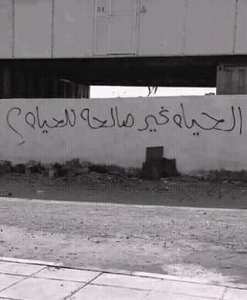 الحياه غير صالحه للحياه ؟